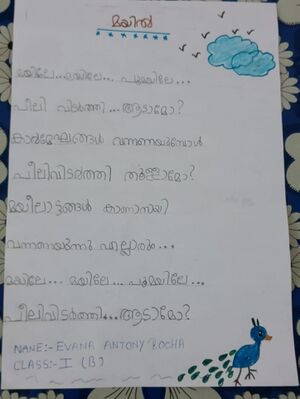 മയിൽ
മയിലേ...മയിലേ... പൂമയിലേ...
പീലി വിടർത്തി...ആടാമോ?
കാർമേഘങ്ങൾ വന്നണയുമ്പോൾ
പീലിവിടർത്തി തുള്ളാമോ?
മയിലാട്ടങ്ങൾ കാണാനായി
വന്നണയുന്നു എല്ലാരും...
മയിലേ... മയിലേ... പൂമയിലേ...
പീലിവിടർത്തി...ആടാമോ?
NAME:- EVANA ANTONY ROCHA
CLASS:- I (B)